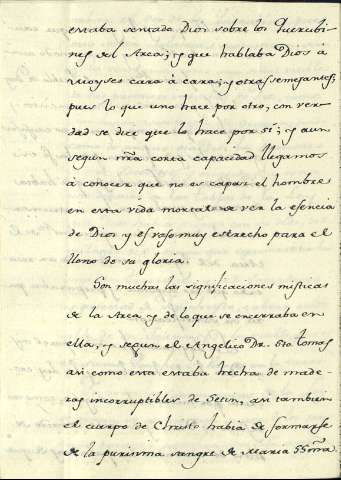 estaba sentado Dios sobre los Querubi-
nes del Arca; y que hablaba Dios á
Moyses cara á cara; y otras semejantes,
pues lo que uno hace por otro, con ver-
dad se dice que lo hace por sí; y aun
segun nrã corta capacidad llegamos
á conocer que no es capaz el hombre
en esta vida mortal de ver la esencia
de Dios y es vaso muy estrecho para el
lleno de su gloria.
Son muchas las significaciones misticas
de la Arca y de lo que se encerraba en
ella, y segun el Angelico Dr. Sto tomas
asi como esta estaba hecha de made-
ras incorruptibles de Setin, asi tambien
el cuerpo de Christo habia de formarse
de la purisima sangre de Maria SSmã.